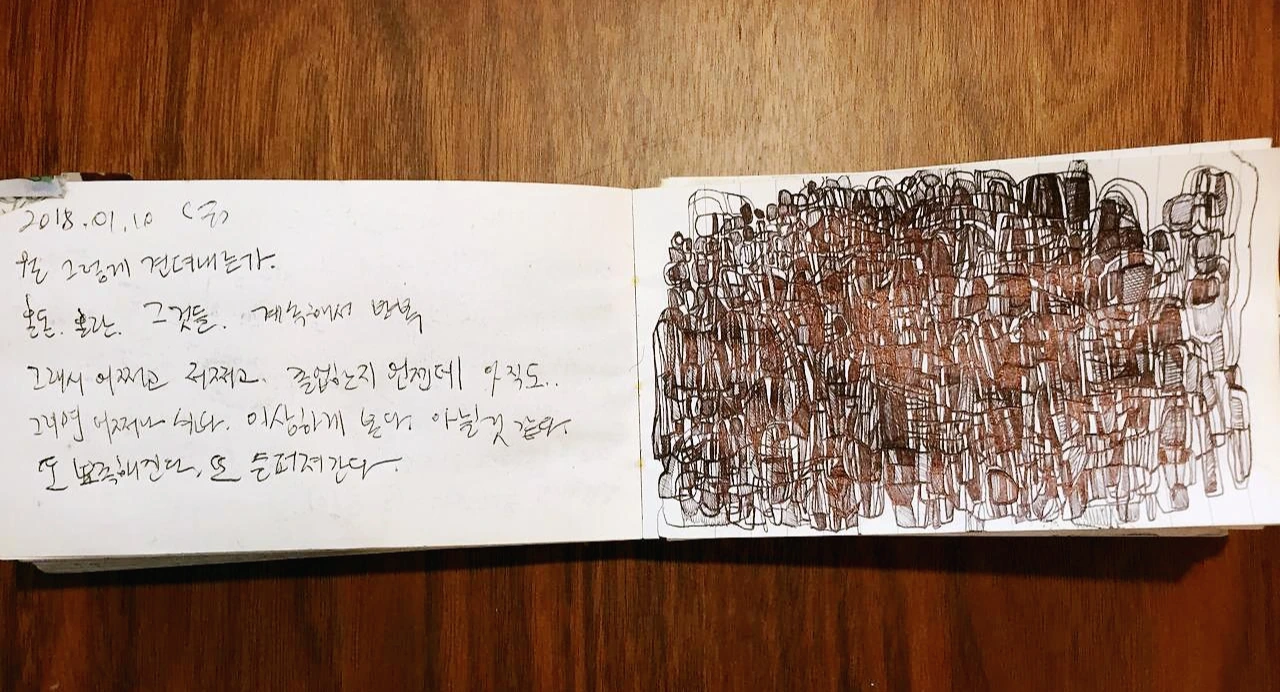 2018.01.10 (수)
왜 그렇게 견뎌내는가.
혼돈. 혼란. 그것들. 계속해서 반복
그래서 어쩌고 저쩌고. 졸업한지 언젠데 아직도..
그러면 어쩌나 싶다. 이상하게 본다. 아닐것 같다.
또 뾰족해진다. 또 슬퍼져간다.